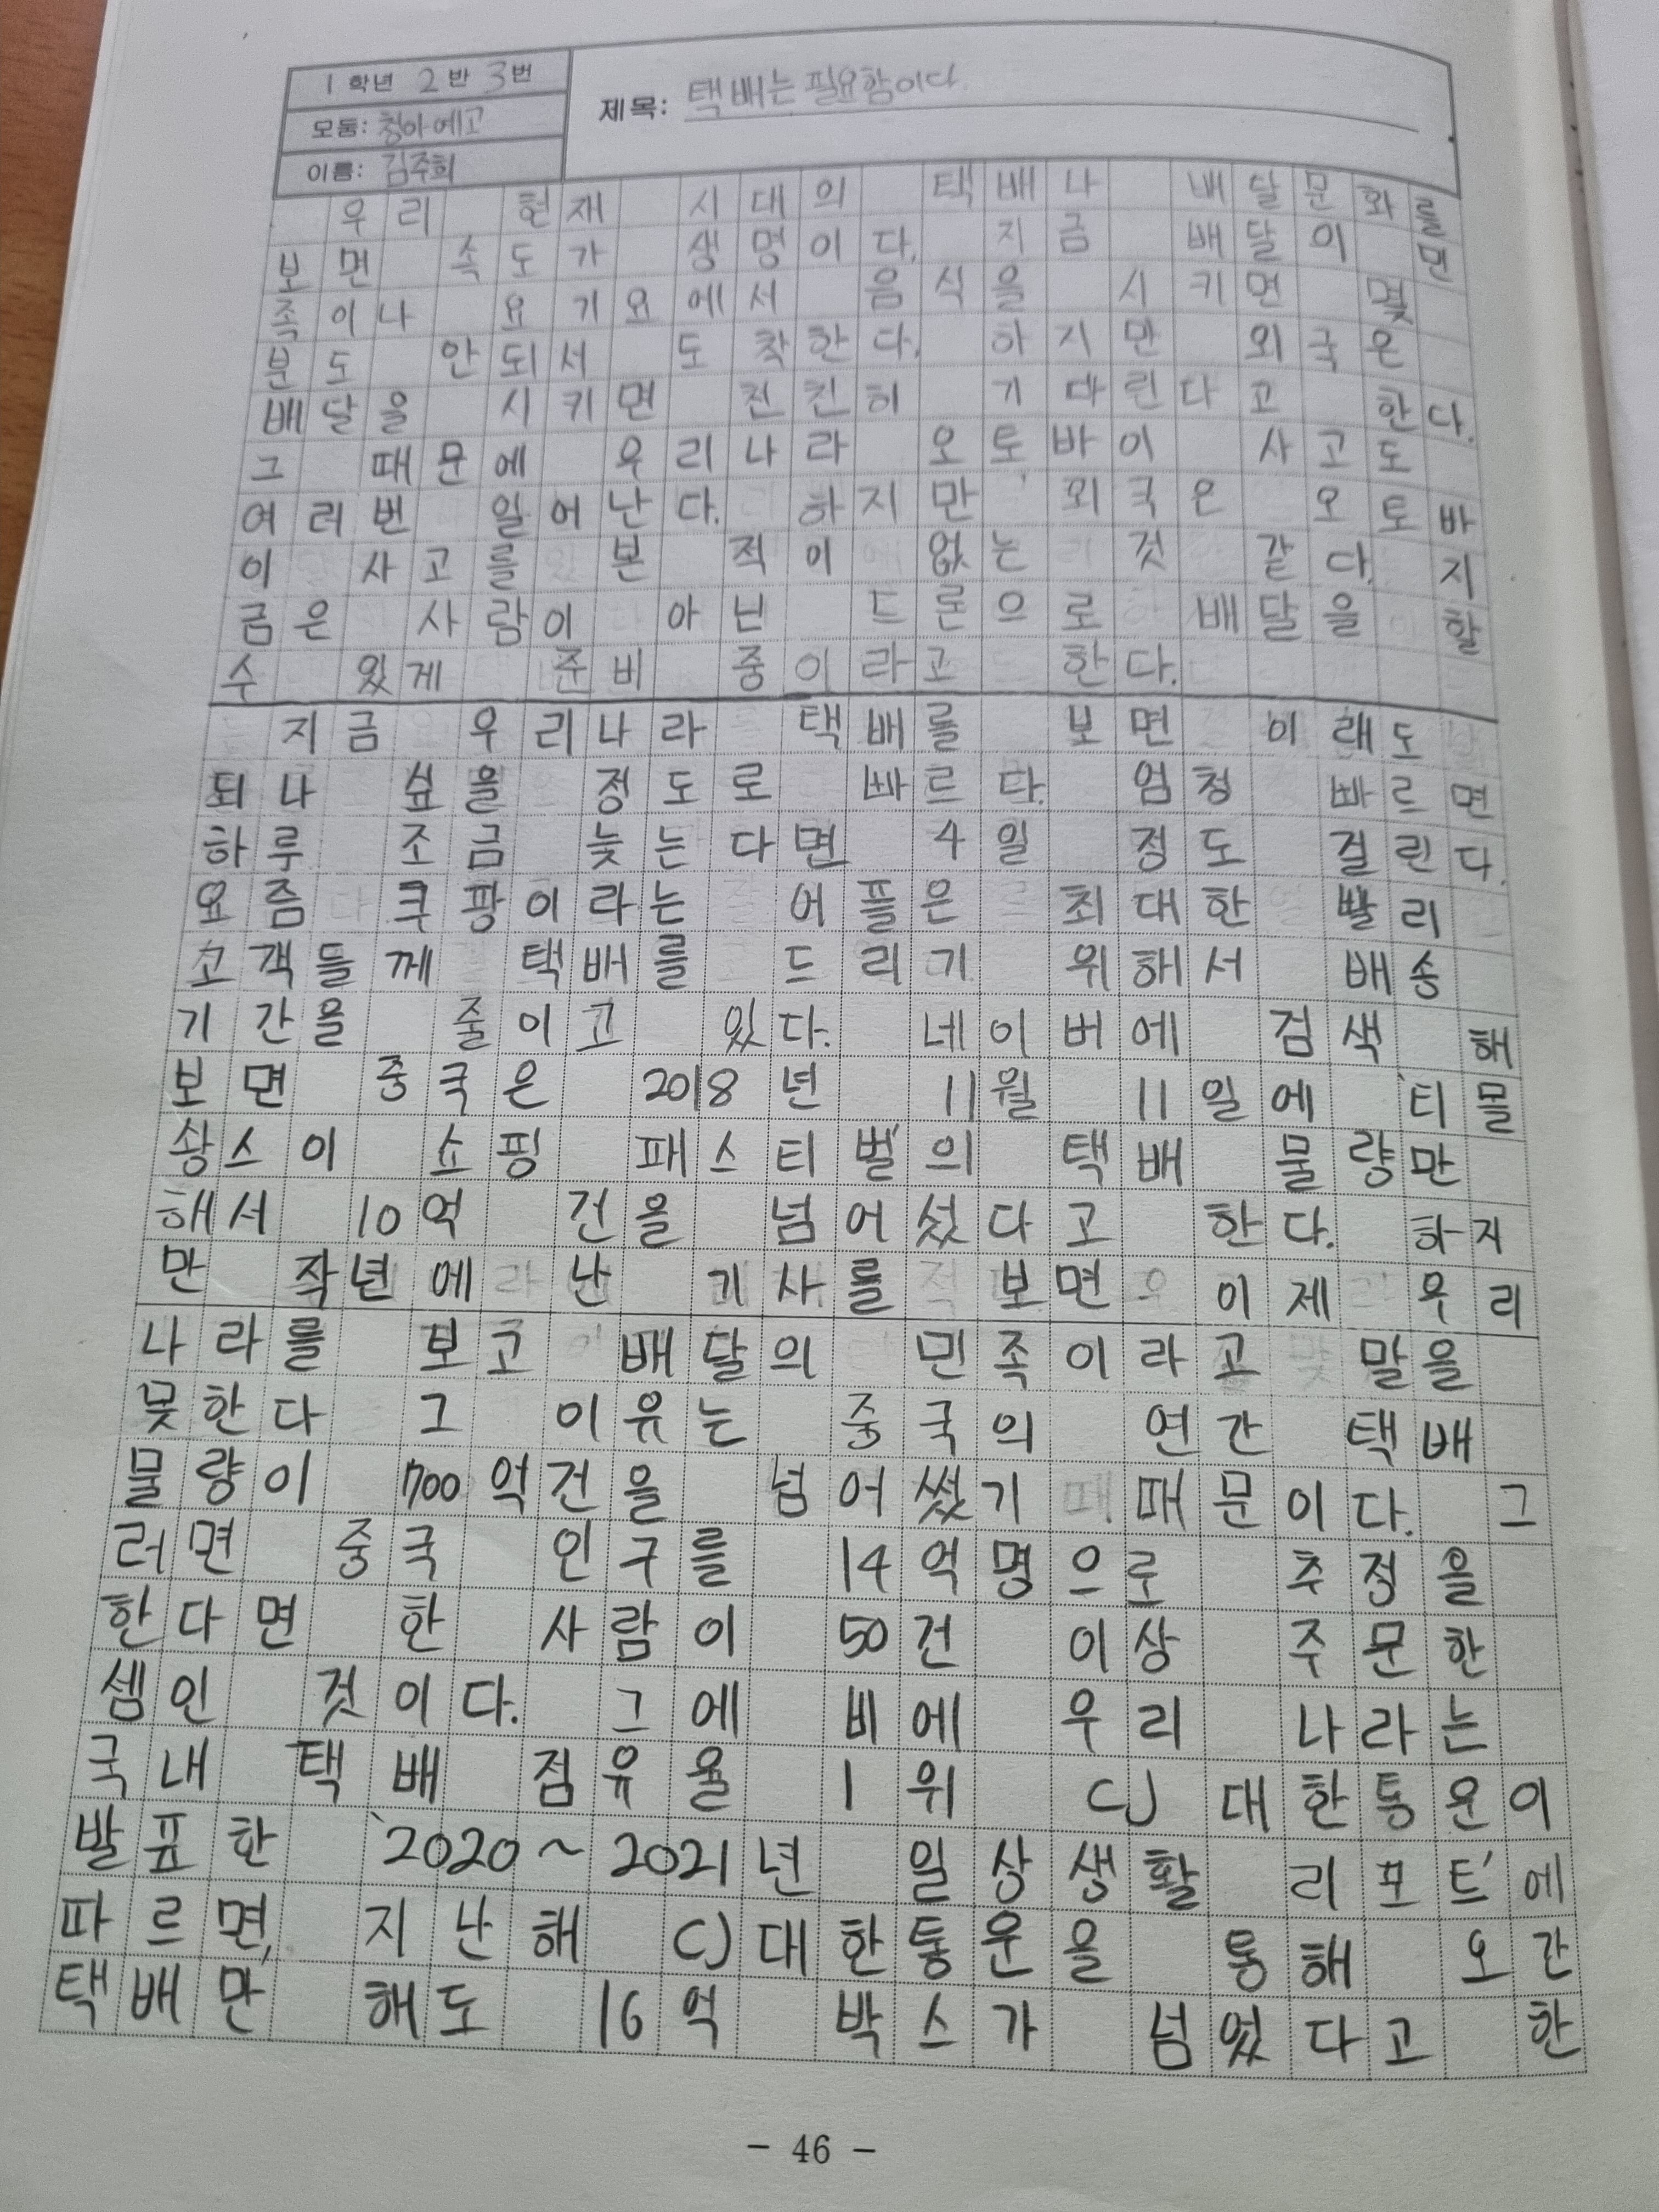 1학년 2반 3번
모둠: 청아예고
이름: 김주희
제목: 택배는 필요함이다.
우리 현재 시대의 택배나 배달문화를
보면 속도가 생명이다. 지금 배달의 민
족이나 요기요에서 음식을 시키면 몇
분도 안되서 도착한다. 하지만 외국은
배달을 시키면 천천히 기다린다고 한다.
그 때문에 우리나라 오토바이 사고도
여러번 일어난다. 하지만 외국은 오토바
이 사고를 본 적이 없는 것 같다. 지
금은 사람이 아닌 드론으로 배달을 할
수 있게 준비 중이라고 한다.
지금 우리나라 택배를 보면 이래도
되나 싶을 정도로 빠르다. 엄청 빠르면
하루 조금 늦는다면 4일 정도 걸린다.
요즘 쿠팡이라는 어플은 최대한 빨리
고객들께 택배를 드리기 위해서 배송
기간을 줄이고 있다. 네이버에 검색 해
보면 중국은 2018년 11월 11일에 '티몰
솽스이 쇼핑 페스티벌'의 택배 물량만
해서 10억 건을 넘어섰다고 한다. 하지
만 작년에 난 기사를 보면 이제 우리
나라를 보고 배달의 민족이라고 말을
못한다 그 이유는 중국의 연간 택배
물량이 700억건을 넘어썼기 때문이다. 그
러면 중국 인구를 14억명으로 추정을
한다면 한 사람이 50건 이상 주문한
셈인 것이다. 그에 비에 우리 나라는
국내 택배 점유율 1위 CJ대한통운이
발표한 '2020~2021년 일상생활 리포트'에
따르면, 지난해 CJ대한통운을 통해 오간
택배만 해도 16억 박스가 넘었다고 한
- 46 -